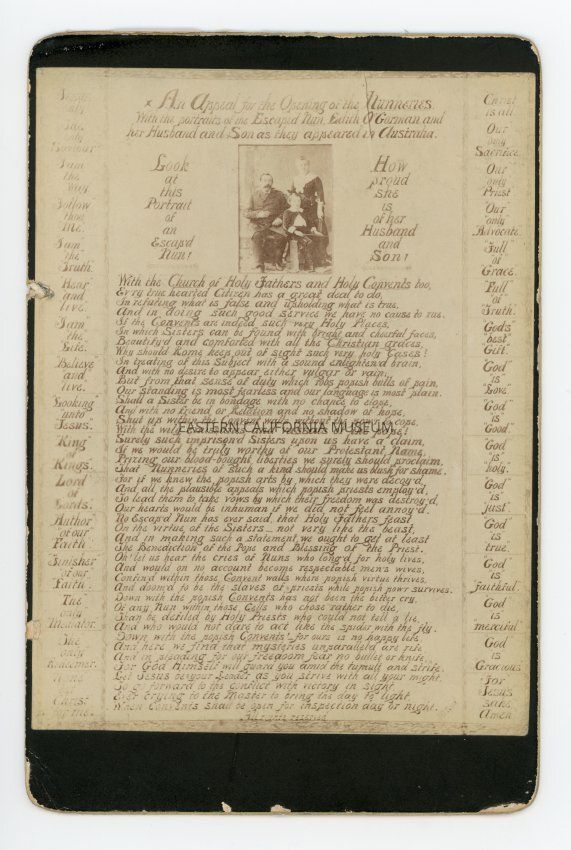 An Appeal for the Opening of the Nunneries.
With the portraits of the Escaped Nun, Edith O'Gorman and
her Husband and Son as they appeared in Australia.
Look
at
this
Portrait
of
an
Escap'd
Nun!
How
proud
she
is
of her
Husband
and
Son!
With the Church of Holy Fathers and Holy Convents too,
Ev'ry true hearted Citizen has a great deal to do,
In refuting what is false and upholding what is true,
And in doing such good service we have no cause to rue.
If the Convents are indeed such very Holy Places,
In which Sisters can be found with bright and cheerful faces,
Beautify'd and comforted with all the Christian graces,
Why should Rome keep out of sight such very holy Cases?
In treating of this Subject with a sound enlighten'd brain,
And with no desire to appear either vulgar or vain,
But from that sense of duty which robs popish bulls of pain,
Our Standing is most fearless and our language is most plain.
Shall a Sister be in bondage with no chance to elope,
And with no Friend or Relation and no shadow of hope,
Shut up within the Convent walls without
With the
EASTERN CALIFORNIA MUSEUM
Surely such imprison'd Sisters upon us have a claim,
If we would be truly worthy of our Protestant Name,
Prizing our blood-bought liberties we surely should proclaim,
That Nunneries of such a kind should make us blush for shame.
For if we knew the popish arts by which they were decoy'd,
And all the plausible appeals which popish priests employ'd,
To lead them to take vows by which their freedom was destroy'd,
Our hearts would be inhuman if we did not feel annoy'd.
No Escap'd Nun has ever said that Holy Fathers feast
On the virtue of the Sisters not very like the beast,
And in making such a statement we ought to get at least
The Benediction of the Pope and Blessing of the Priest.
Oh! let us hear the cries of Nuns who long'd for holy lives,
And would on no account become respectable men's wives,
Confin'd within those Convent walls where popish virtue thrives,
And doom'd to be the slaves of priests while popish pow'r survives.
Down with the popish Convents has not been the bitter cry,
Of any Nun within those Cells who chose rather to die,
Than be defiled by Holy Priests who could not tell a lie,
And who would not dare to act like the spider with the fly.
Down with the popish Convents! for ours is no happy life
And here we find that mysteries unparalleled are rife,
And in pleading for our freedom fear no bullet or knife,
For God Himself will guard you amid the tumult and strife.
Let Jesus be your Leader as you serve with all your might,
So go forward to the conflict with victory in sight
Ever crying to the Master to bring the day to light,
When Convents shall be open for inspection day or night.
All rights reserved
Saviour
I am
the
Way
Follow
thou
Me.
I am
the
Truth.
Hear
and
live.
I am
the
Life.
Believe
and
live.
Looking
unto
Jesus.
King
of
Kings.
Lord
of
Lords.
Author
of our
Faith
Finisher
of our
Faith
The
only
Mediator.
The
only
Redeemer.
Christ
for me.
Christ
is all
Our
only
Sacrifice
Our
only
Priest
Our
only
Advocate.
Full
of
Grace.
Full
of
Truth.
God's
best
Gift.
God
is
Love
God
is
Good.
God
is
holy.
God
is
just
God
is
true.
God
is
faithful
God
is
merciful
God
is
Gracious
for
Jesus's
sake
Amen